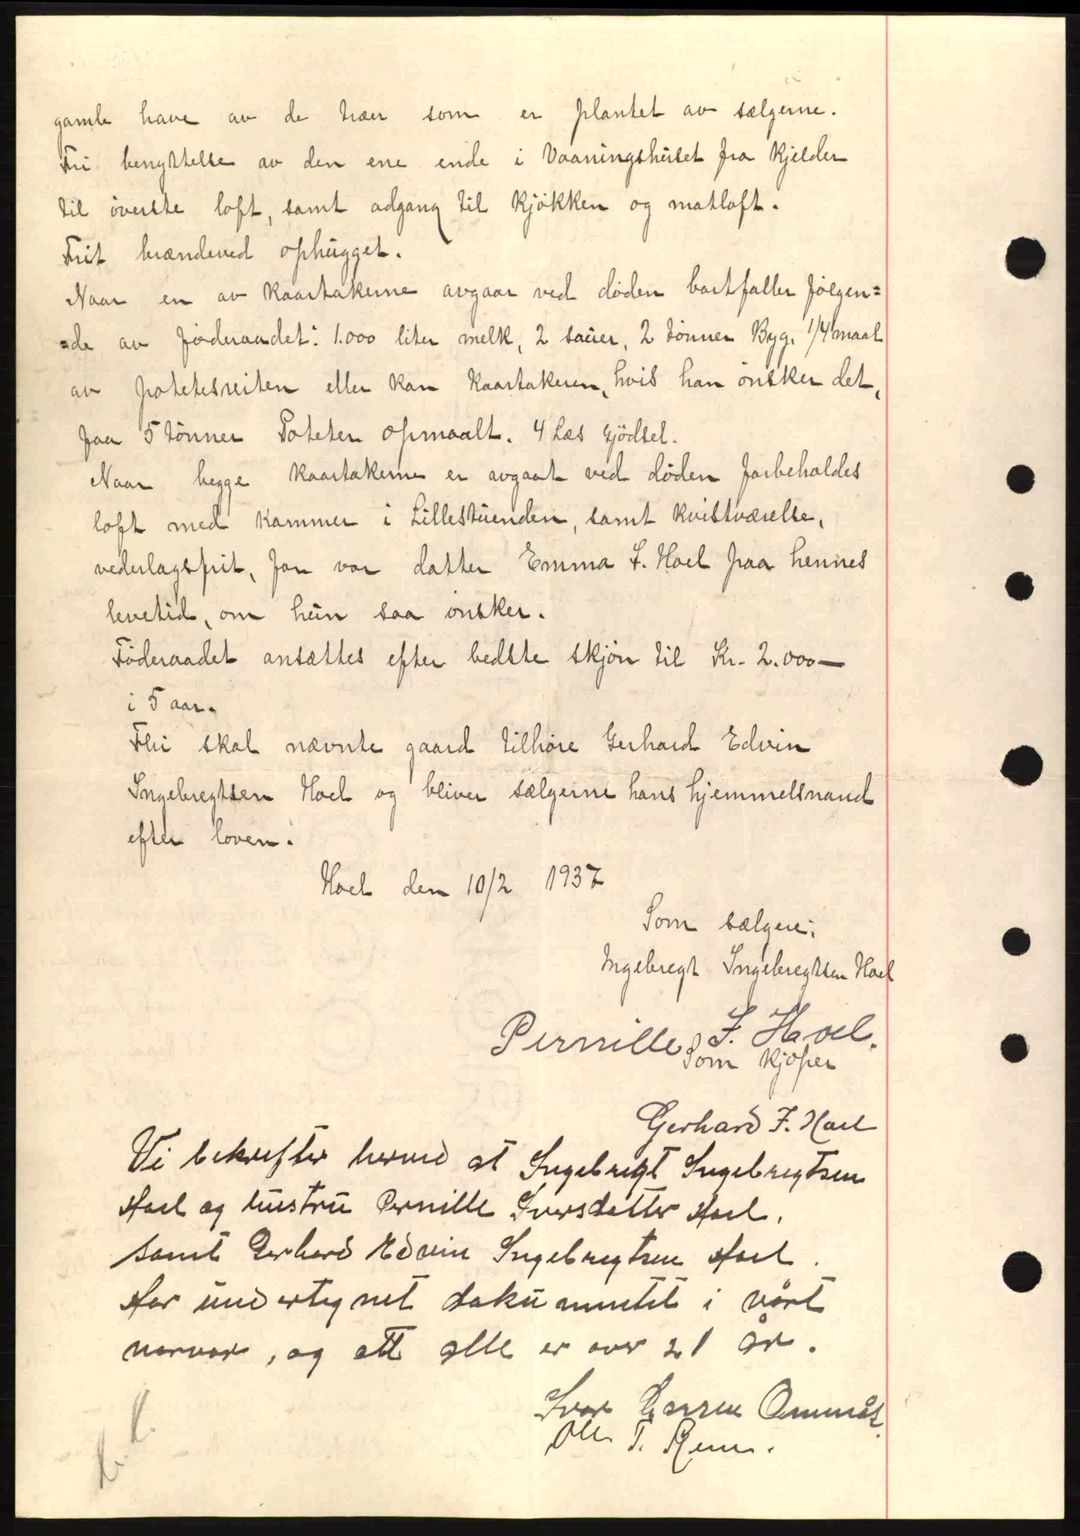 gamle have av de trær som er plantet av sælgerne.
Fri benyttelse av den ene ende i Vaaningshuset fra kjelder
til överste loft, samt adgang til kjøkken og matloft.
Frit brændeved ophugget.
Naar en av kaartakerne avgaar ved døden bortfaller følgen=
=de av føderaadet: 1.000 liter melk, 2 sauer, 2 tönner Byg. 1/4 maal
av potetesreiten eller kan kaartakeren, hvis han önsker det,
faa 5 tönner Poteter opmaalt. 4 Læs Gjödsel.
Naar begge kaartakerne er avgaat ved døden forbeholdes
loft med kammer i Lillestuenden, samt kvistværelse,
vederlagsfrit, for vor datter Emma I. Hoel paa hennes
levetid, om hun saa önsker.
Föderaadet ansættes efter bedste skjön til Kr. 2.000—
i 5 aar.
Thi skal nævnte gaard tilhöre Gerhard Edvin
Ingebregtsen Hoel og bliver sælgerne hans hjemmelsmænd
efter loven.
Hoel den 10/2 1937
Som sælgere:
Ingebregt Ingebregtsen Hoel
Pernille I. Hoel.
Som kjöper
Gerhard I. Hoel
Vi bekrefter herved at Ingebregt Ingebregtsen
Hoel og hustru Pernille Iversdatter Hoel,
samt Gerhard Edvin Ingebregtsen Hoel.
Har undertegnet dokumentet i vårt
nærvær, og att alle er over 21 år.
Ivar Larsen
Ole T.